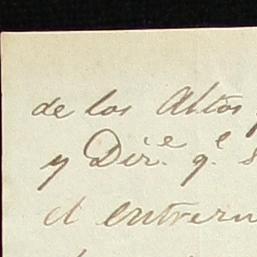 de los Altos
y Dir.e q.e s
el entrern